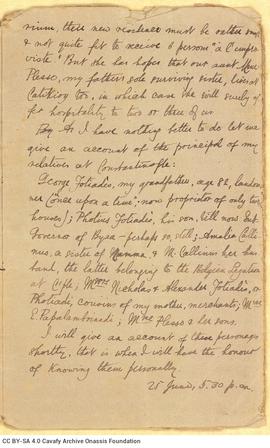 nium, their new residence must be rather small
& not quite fit to receive 8 persons "à l'impro
viste". But she has hopes that our aunt Mme
Plesso, my father's sole surviving sister, lives at
Catikioy too, in which case she will surely of
fer hospitality to two or three of us
As I have nothing better to do let me
give an account of the principal of my
relatives at Constantinople:
George Fotiades, my grandfather, age 82, landow
ner (once upon a time; now proprietor of only two
houses); Photius Fotiadis, his son, till now Sub
Governor of Byea - perhaps so, still; Amalia Calli
nus, a sister of Mamma & M. Callinus her hus
band, the latter belonging to the Belgian Legation
at C/ple; Mrs Nicholas & Alexander Fotiadis, or
Photiades, cousins of my mother, merchants; Mme
E. Papalambrinadi; Mme Plesso & her sons.
I will give an account of these personages
shortly, that is when I will have the honour
of knowing them personally
25 June, 5.30 p.m.
CC BY-SA 4.0 Cavafy Archive Onassis Foundation